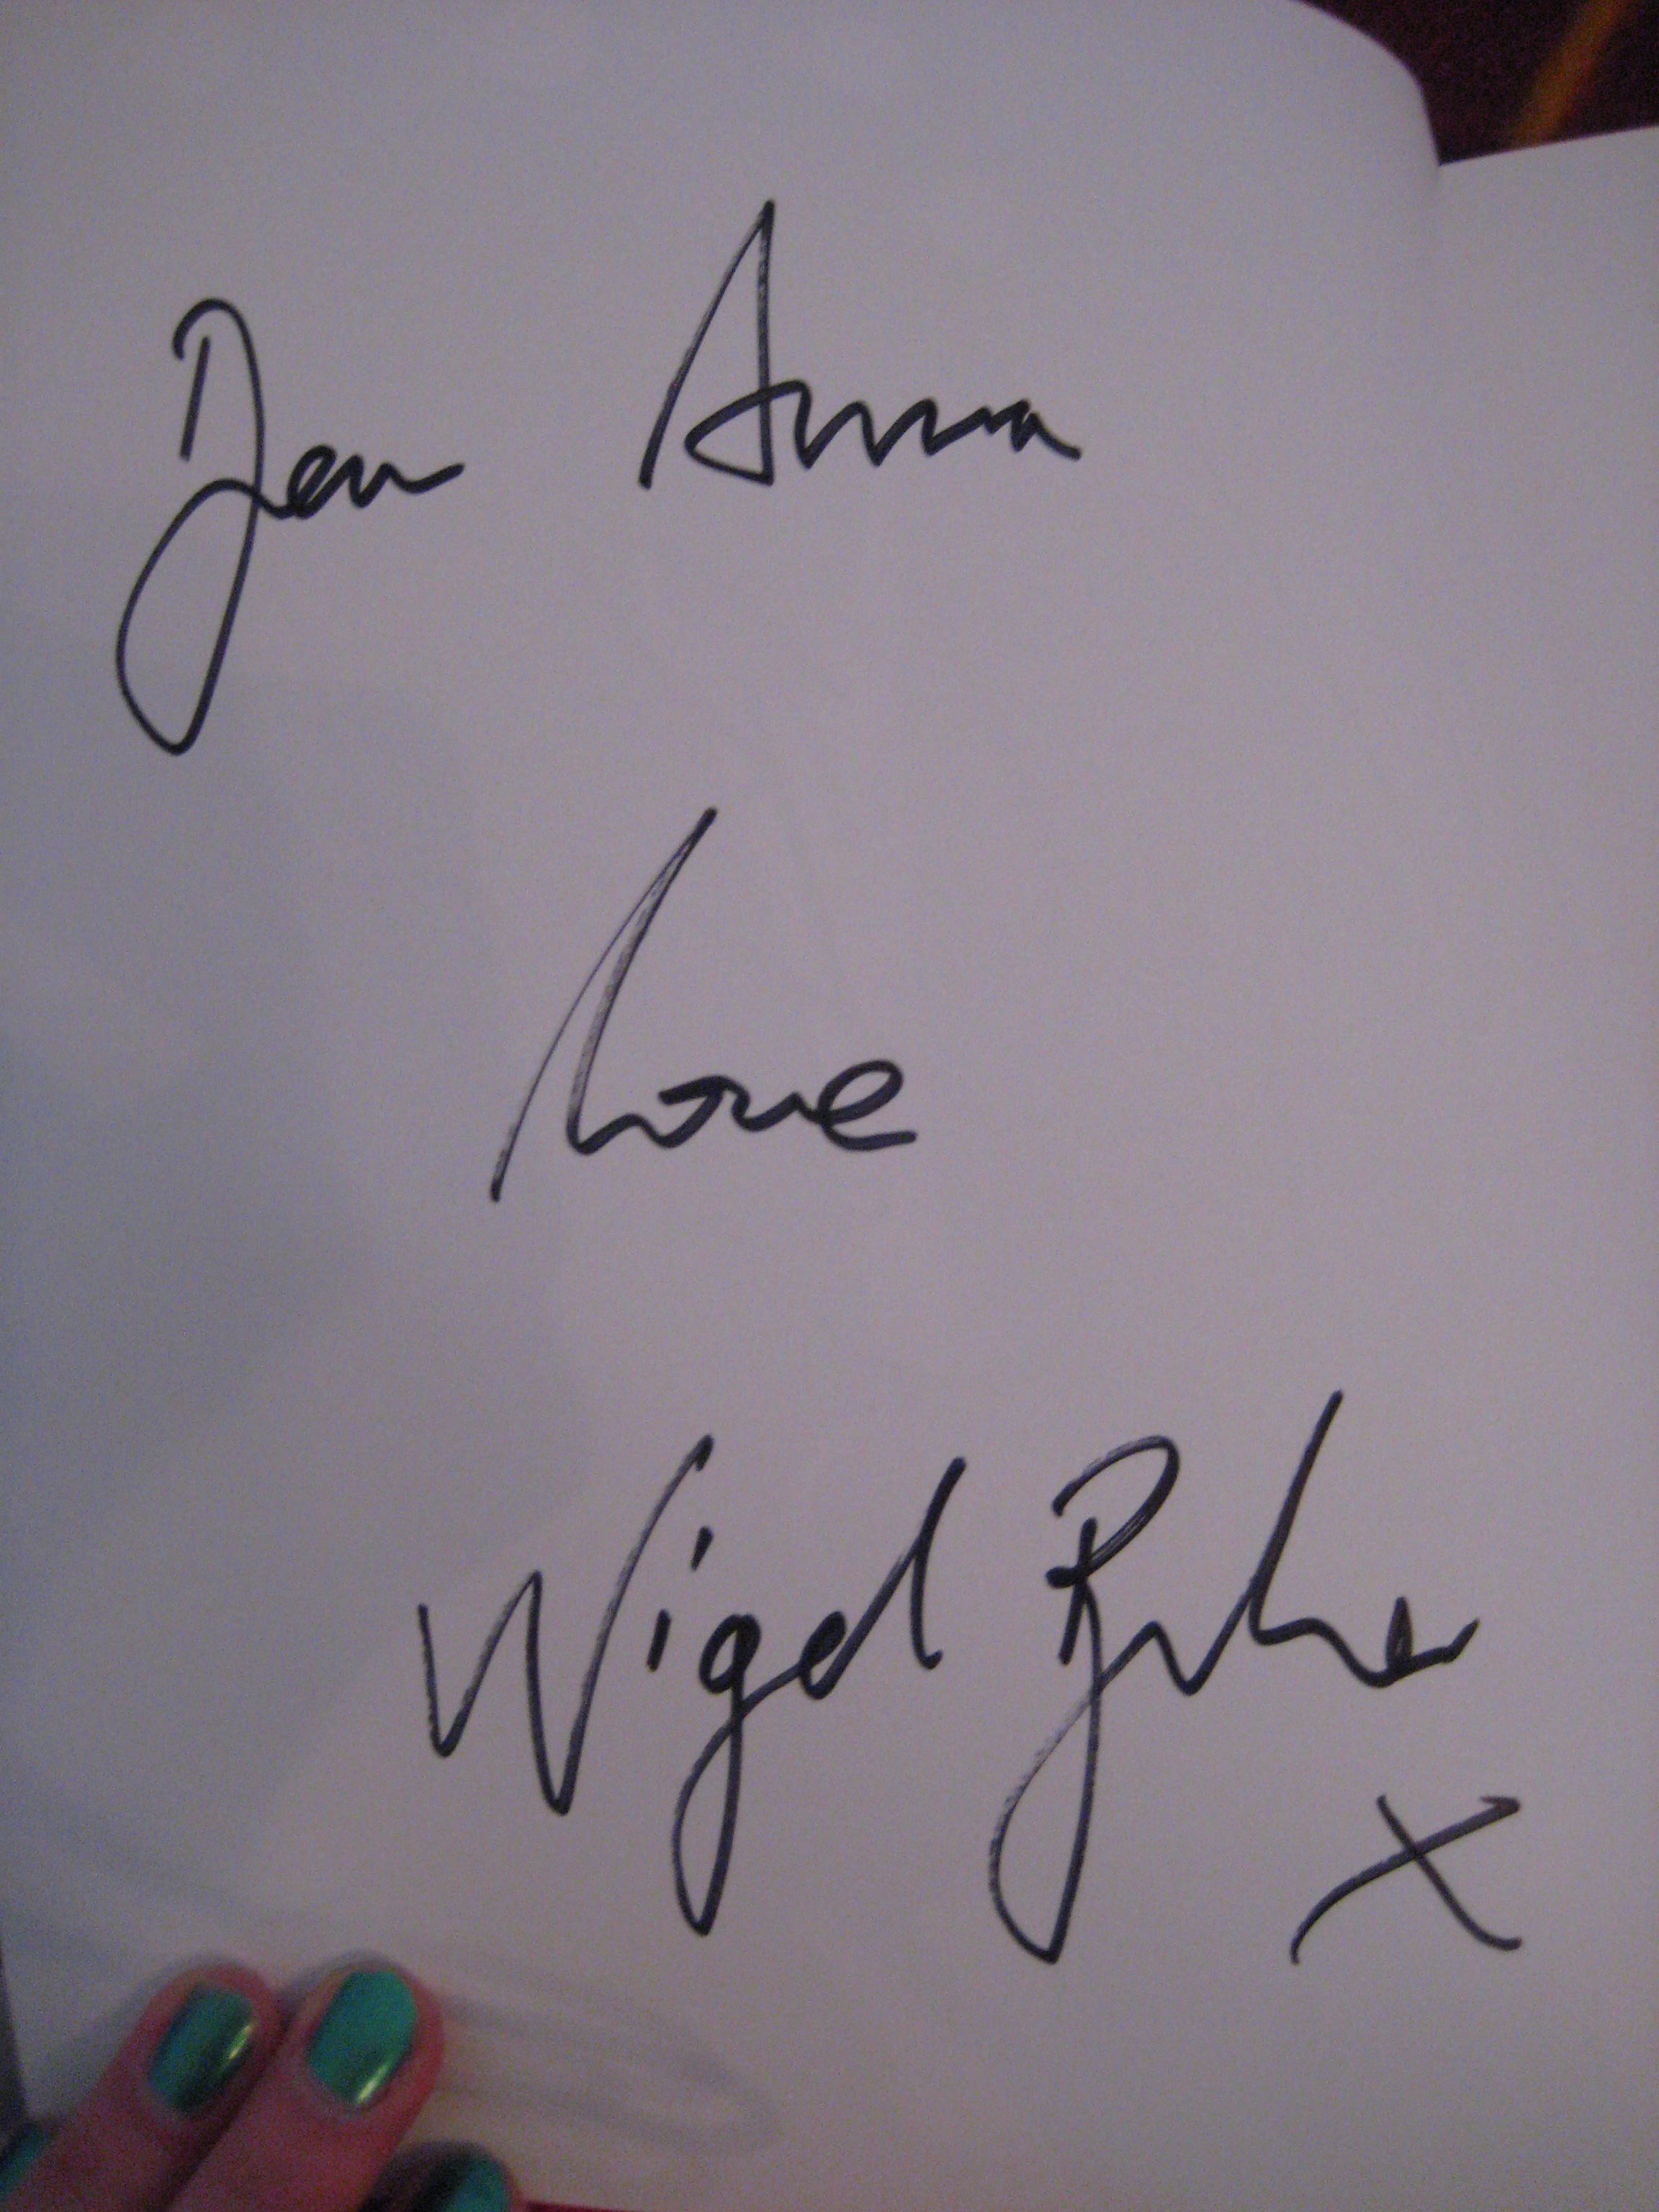 Dear Anna
Love
Nigel
x